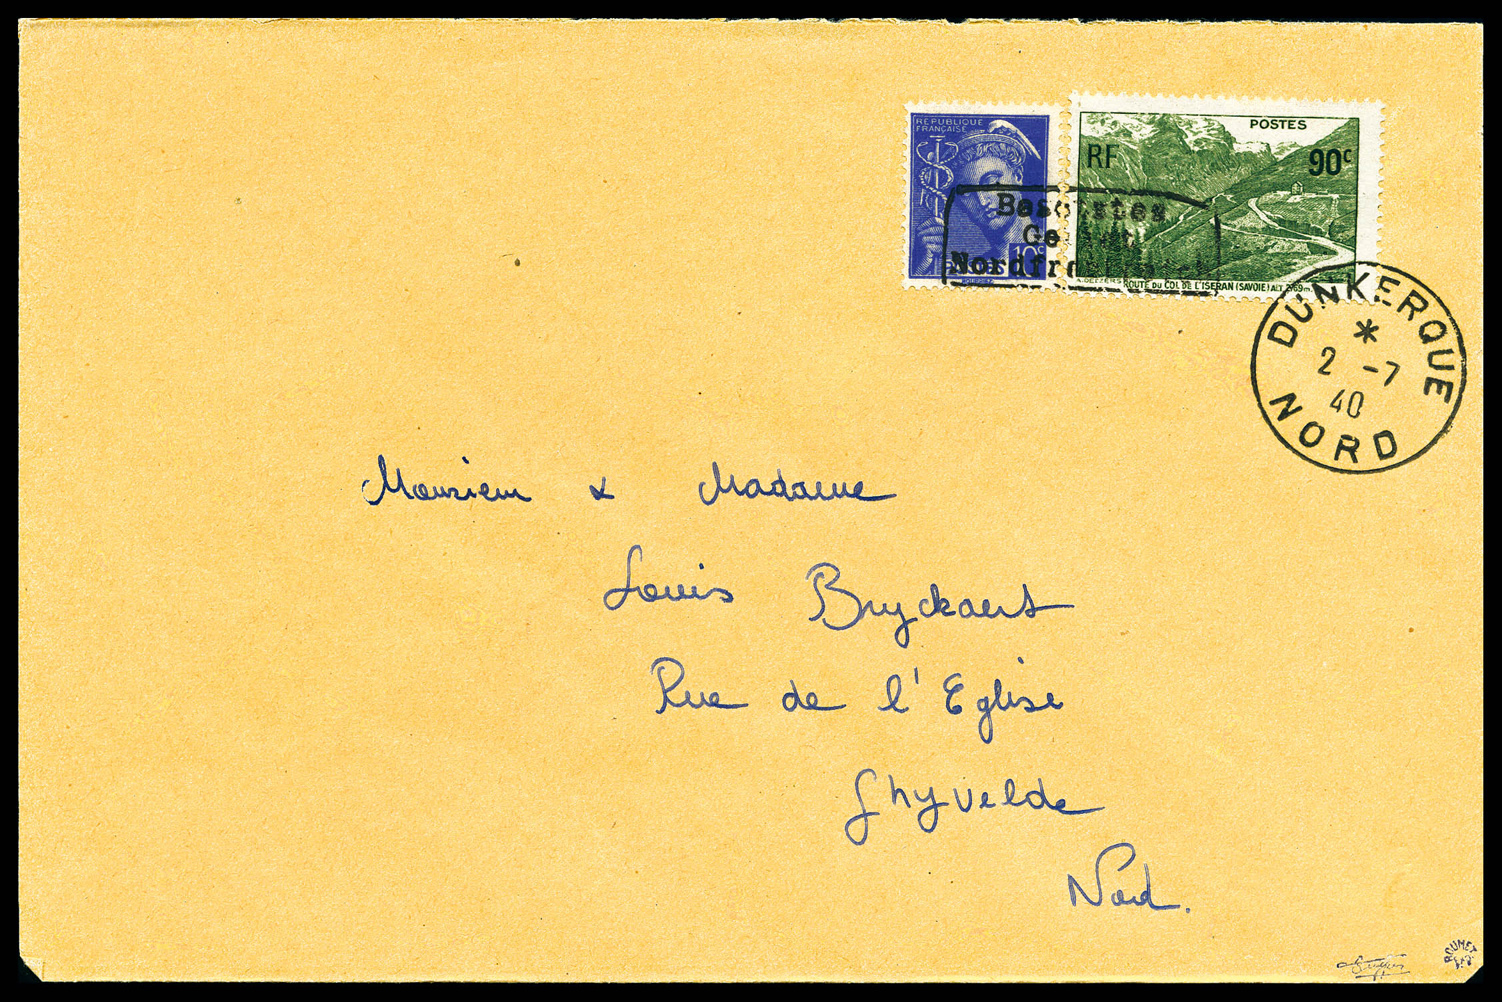 RÉPUBLIQUE
FRANÇAISE
10c
POSTES
RF
90c
ROUTE DU COL DE L'ISERAN (SAVOIE) ALT. 2769m.
DUNKERQUE
*
2 -7
40
NORD
Monsieur & Madame
Louis Bryckaert
Rue de l'Eglise
Ghyvelde
Nord.
ROUMET